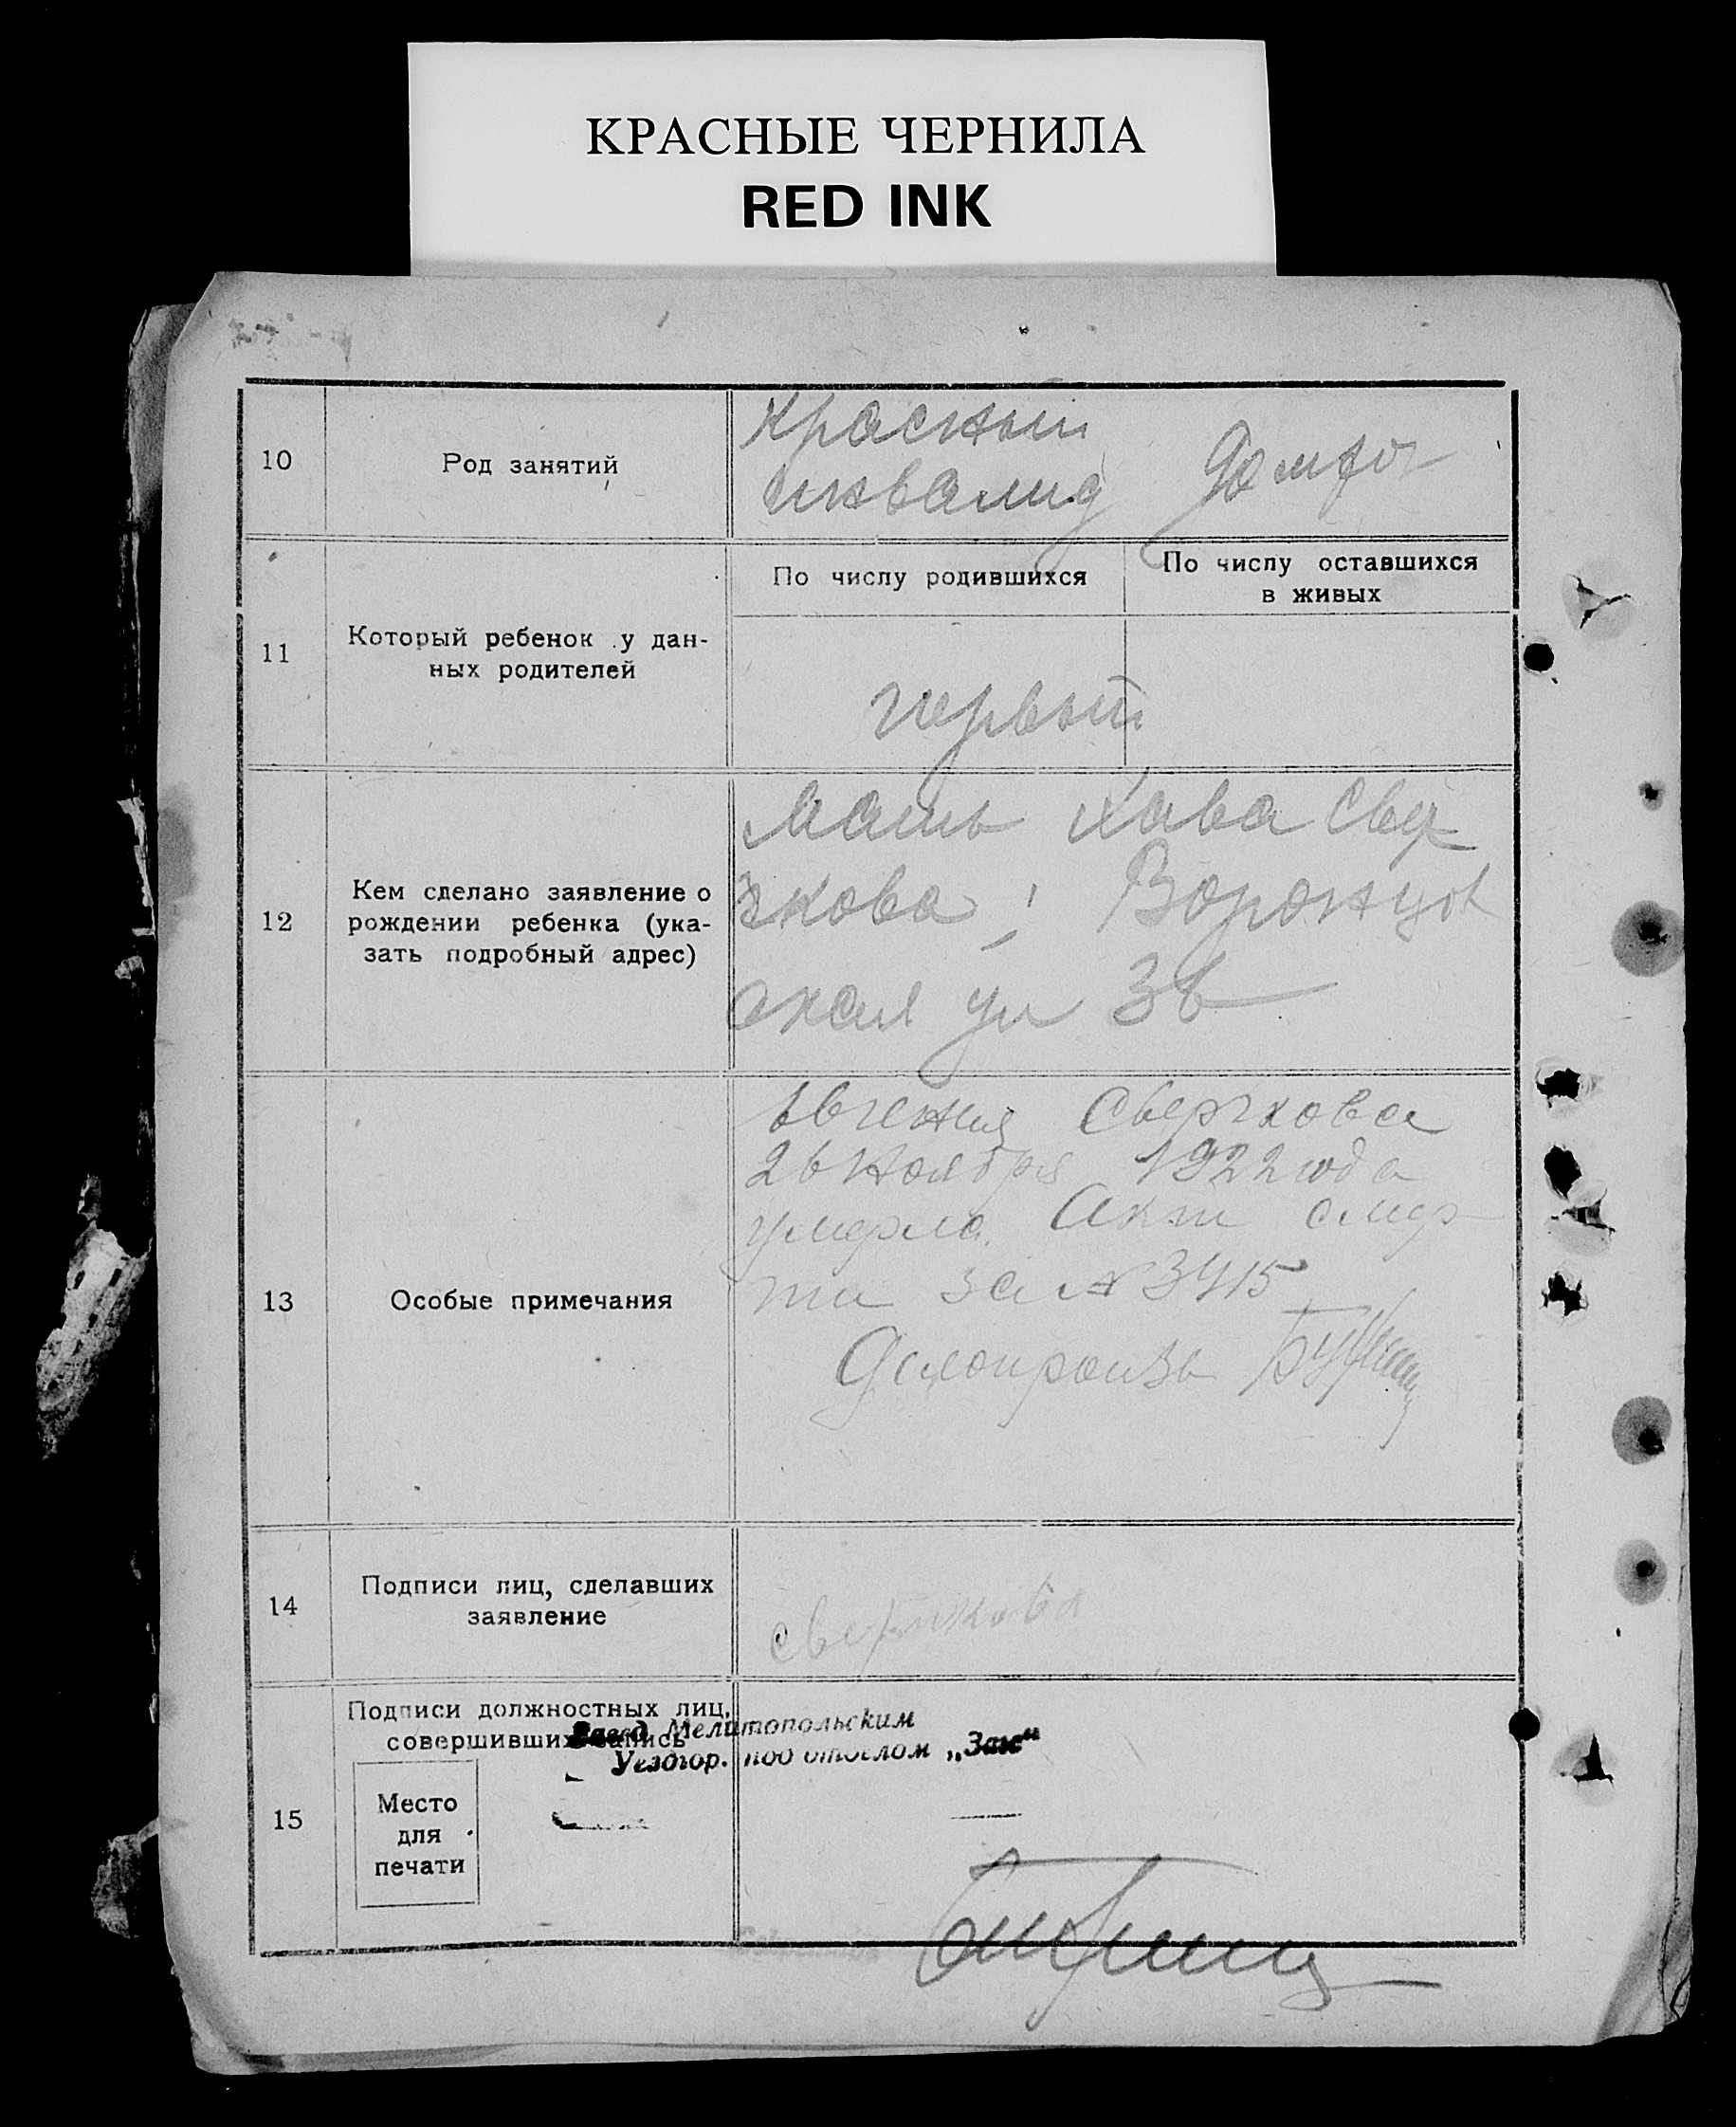 КРАСНЫЕ ЧЕРНИЛА
RED INK
10
Род занятий
Красный
инвалид
11
Который ребенок у дан-
ных родителей
По числу родившихся
По числу оставшихся
в живых
первый
12
Кем сделано заявление о
рождении ребенка (ука-
зать подробный адрес)
Мать Хава Свер
чкова, Воронцов
ская ул 36
13
Особые примечания
Евгения Сверчкова
26 Ноября 1922 года
умерла. Акт смер-
ти за № 3415
Делопроизв
14
Подписи лиц, сделавших
заявление
сверчкова
15
Подписи должностных лиц,
совершивших запись
Завед. Мелитопольским
Уездгор. под отделом „Загс“
Место
для
печати